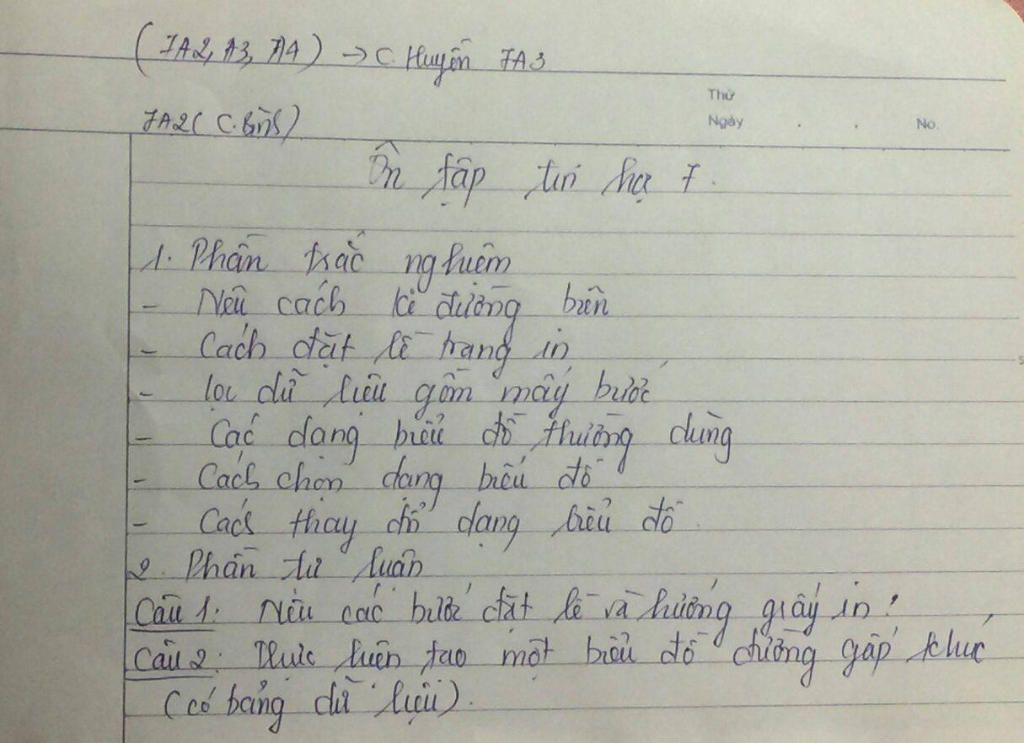 (7A2, A3, A4) → C. Huyền 7A3
Thứ
7A2 (C. Bình)
Ngày . . No.
Ôn tập tin học 7.
1. Phần trắc nghiệm
- Nêu cách kẻ đường biên
- Cách đặt lề trang in
- lọc dữ liệu gồm mấy bước
- Các dạng biểu đồ thường dùng
- Cách chọn dạng biểu đồ
- Cách thay đổi dạng biểu đồ.
2. Phần tự luận
Câu 1: Nêu các bước đặt lề và hướng giấy in!
Câu 2: Thực hiện tạo một biểu đồ đường gấp khúc
(có bảng dữ liệu).